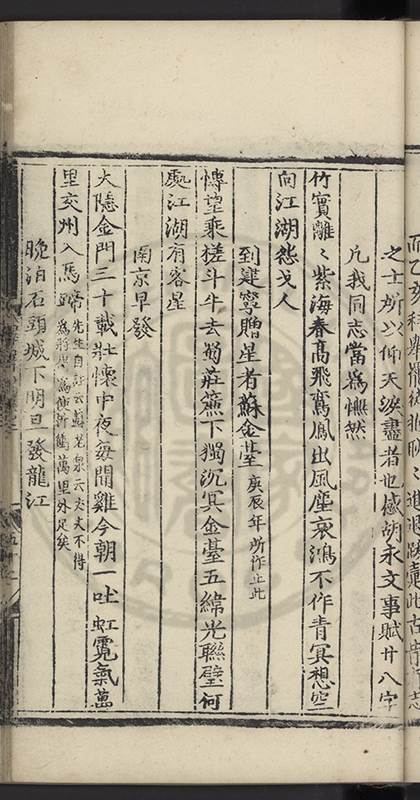 之士所以仰天淚盡者也感胡永文事賦廿八字
凡我同志當為憮然
竹實離〻紫海春高飛鸞鳳出風塵哀鴻不作青冥想空
向江湖怨弋人
到建寧贈星者蘇金臺庚辰年所作止此
博望乘槎斗牛去蜀莊簾下獨沉冥金臺五緯光聯璧何
處江湖有客星
南京早發
大隱金門三十載壯懷中夜每聞雞今朝一吐虹霓氣萬
里交州入馬蹄先生自註云蘇老泉云丈夫不得
為將得為使折衝萬里外足矣
晚泊石頭城下明旦發龍江